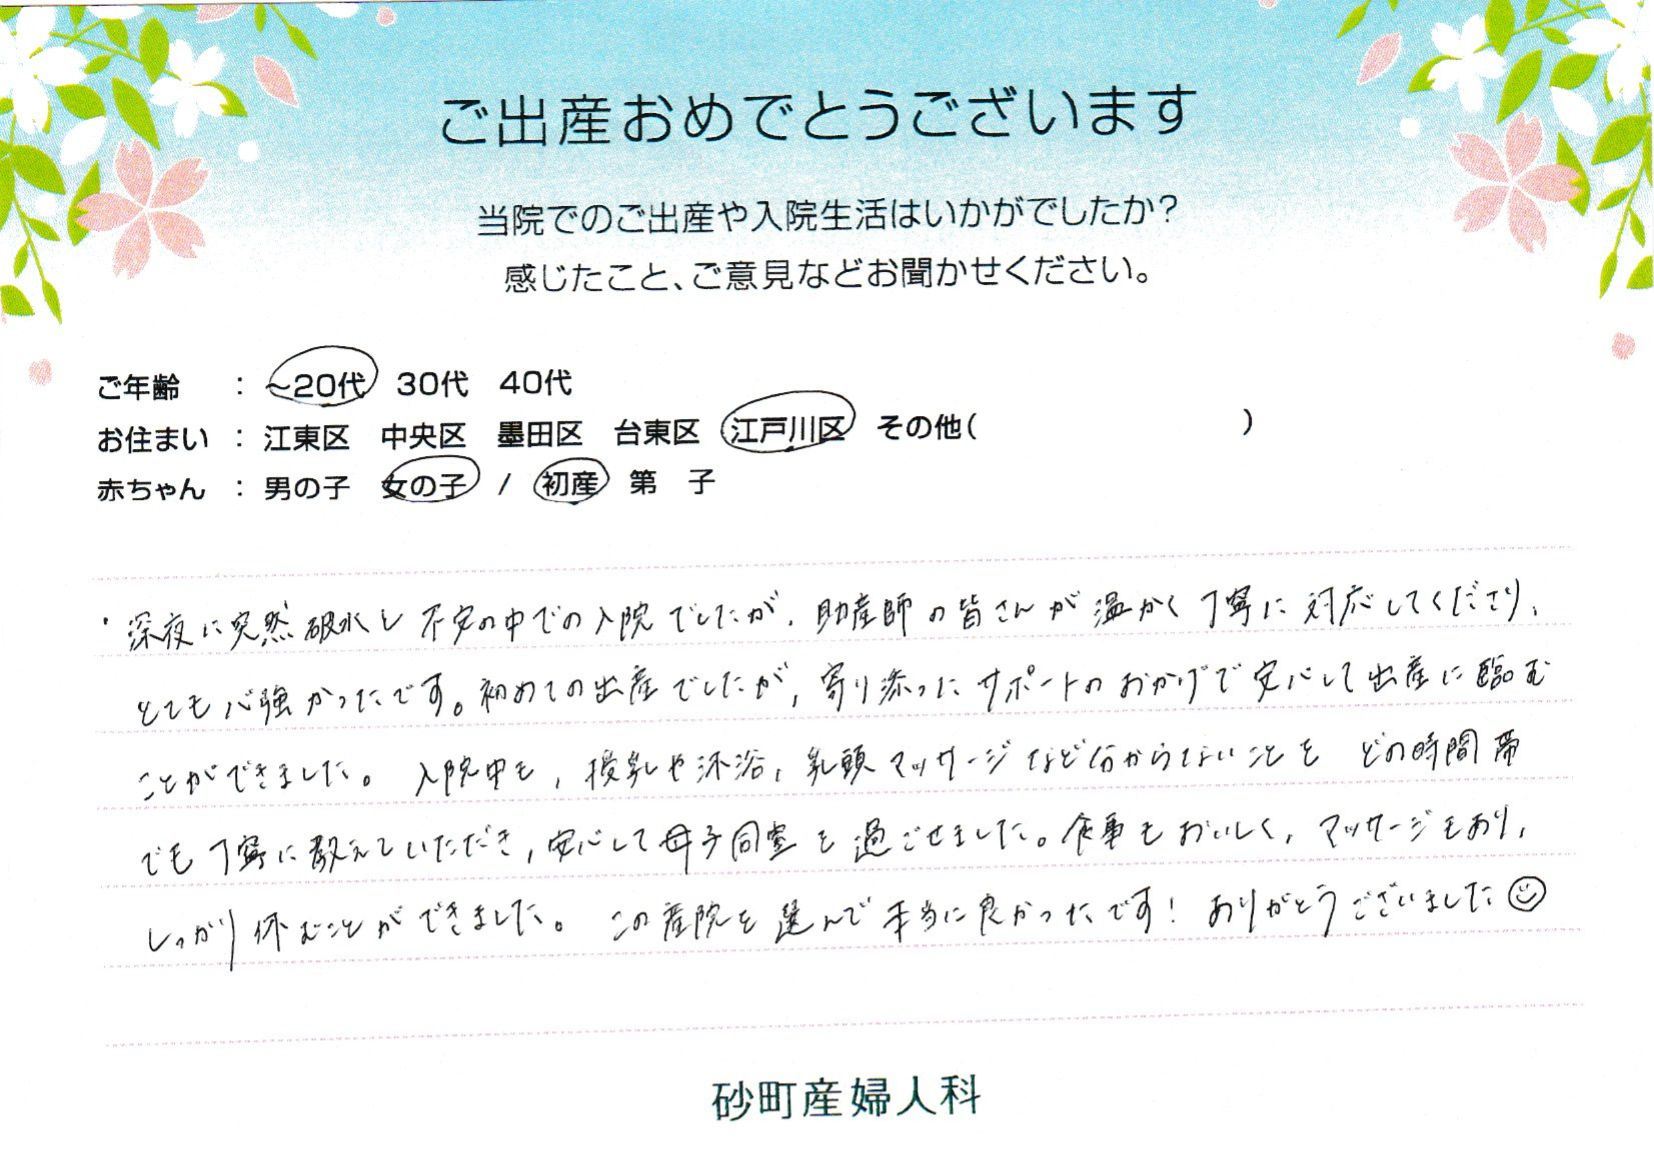 ご出産おめでとうございます
当院でのご出産や入院生活はいかがでしたか?
感じたこと、ご意見などお聞かせください。
ご年齢 : ~20代 30代 40代
お住まい : 江東区 中央区 墨田区 台東区 江戸川区 その他( )
赤ちゃん : 男の子 女の子 / 初産 第 子
・深夜に突然破水し不安の中での入院でしたが、助産師の皆さんが温かく丁寧に対応してくださり、
とても心強かったです。初めての出産でしたが、寄り添ったサポートのおかげで安心して出産に臨む
ことができました。 入院中も、授乳や沐浴、乳頭マッサージなど分からないことを どの時間帯
でも丁寧に教えていただき、安心して母子同室を過ごせました。食事もおいしく、マッサージもあり、
しっかり休むことができました。 この産院を選んで本当に良かったです! ありがとうございました☺
砂町産婦人科